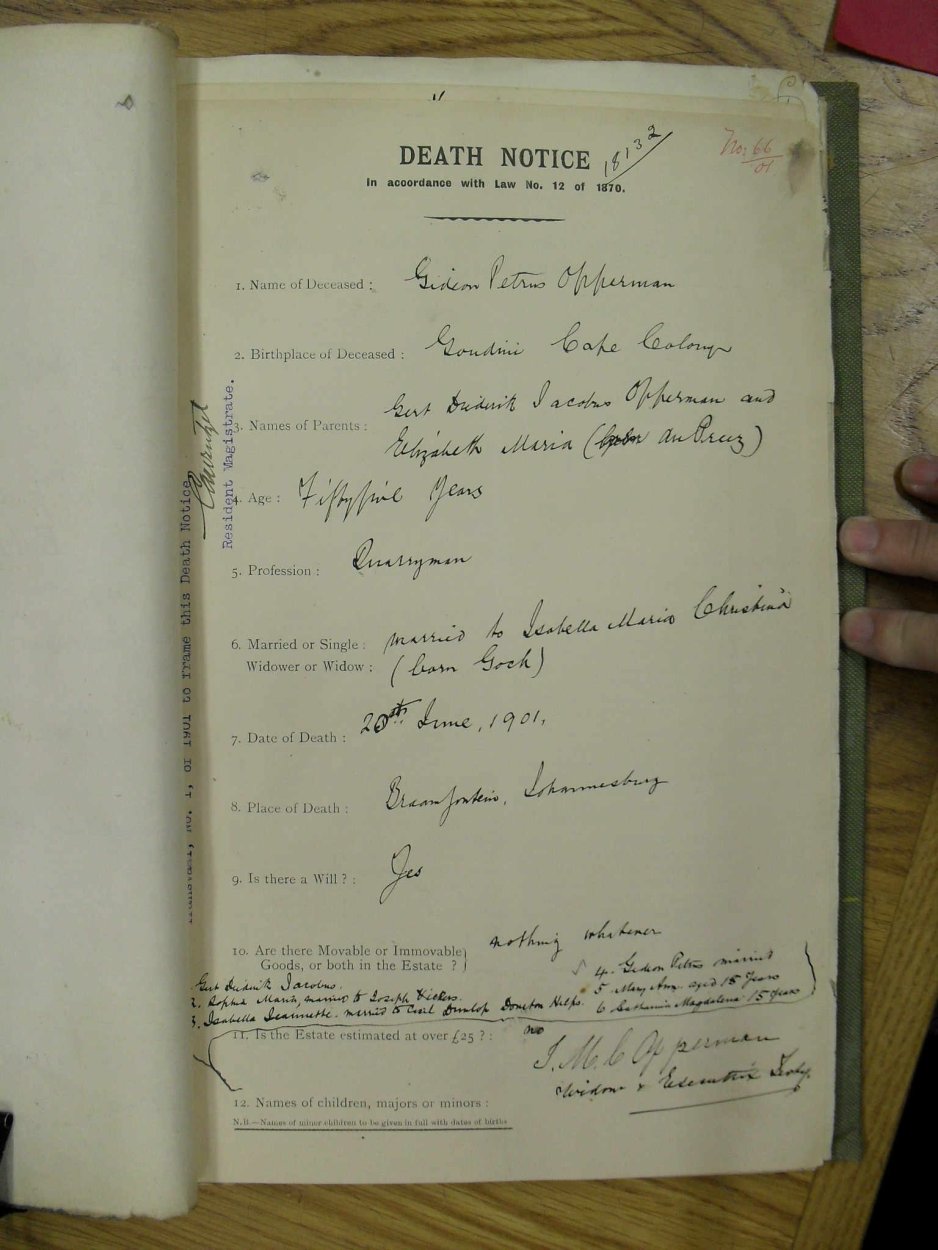 18132
No: 66/01
DEATH NOTICE
In accordance with Law No. 12 of 1870.
1. Name of Deceased : Gideon Petrus Opperman
2. Birthplace of Deceased : Goudini Cape Colony
Gert Diderik Jacobus Opperman and
3. Names of Parents :
Elizabeth Maria (born du Preez)
4. Age : Fiftyfive Years
5. Profession : Quarryman
6. Married or Single : married to Isabella Maria Christina
Widower or Widow : (born Goch)
7. Date of Death : June, 1901.
8. Place of Death : Braamfontein, Johannesburg
9. Is there a Will ? : Yes
10. Are there Movable or Immovable nothing whatever
Goods, or both in the Estate ? 4. Gideon Petrus married
Gert Diderik Jacobus. 5 Mary Ann aged 18 Years
2. Sophia Maria, married to Joseph Vickers. 6 Catharina Magdalena 15 Years
3. Isabella Jeannette. married to Cecil Dunlop Downton Helps.
11. Is the Estate estimated at over £25 ? : no
I. M. C Opperman
Widow & Executrix Testy.
12. Names of children, majors or minors :
N.B.—Names of minor children to be given in full with dates of births
Resident Magistrate.
No. 1, of 1901 to frame this Death Notice